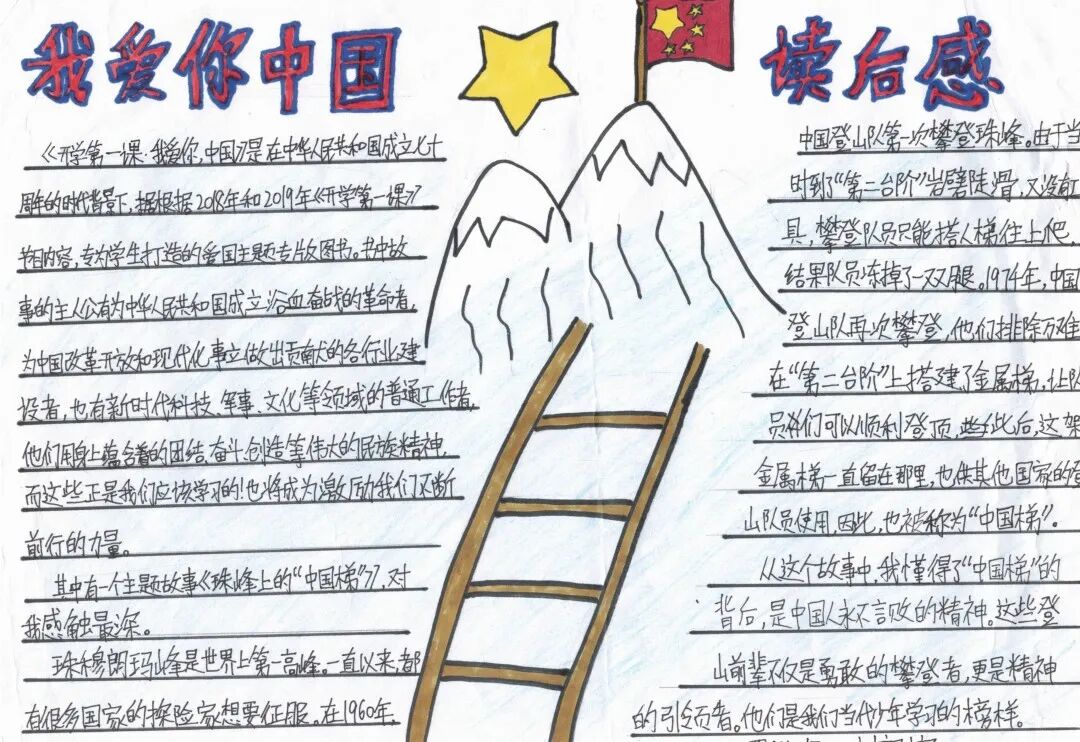 我爱你中国
读后感
《开学第一课·我爱你,中国》是在中华人民共和国成立七十
周年的时代背景下,据根据2018年和2019年《开学第一课》
节目内容,专为学生打造的爱国主题专版图书。书中故
事的主人公有为中华人民共和国成立浴血奋战的革命者,
为中国改革开放和现代化事业做出贡献的各行业建
设者,也有新时代科技、军事、文化等领域的普通工作者,
他们用身上蕴含着的团结、奋斗、创造等伟大的民族精神,
而这些正是我们应该学习的!也将成为激励我们不断
前行的力量。
其中有一个主题故事《珠峰上的“中国梯”》,对
我感触最深。
珠穆朗玛峰是世界上第一高峰。一直以来,都
有很多国家的探险家想要征服。在1960年,
中国登山队第一次攀登珠峰。由于当
时到了“第二台阶”岩壁陡滑,又没有工
具,攀登队员只能搭人梯往上爬,
结果队员冻掉了一双腿。1974年,中国
登山队再次攀登,他们排除万难
在“第二台阶”上搭建了金属梯,让队
员们可以顺利登顶,些此后,这架
金属梯一直留在那里,也供其他国家的登
山队员使用,因此,也被称为“中国梯”。
从这个故事中,我懂得了“中国梯”的
背后,是中国人永不言败的精神。这些登
山前辈不仅是勇敢的攀登者,更是精神
的引领者。他们是我们当代少年学习的榜样。